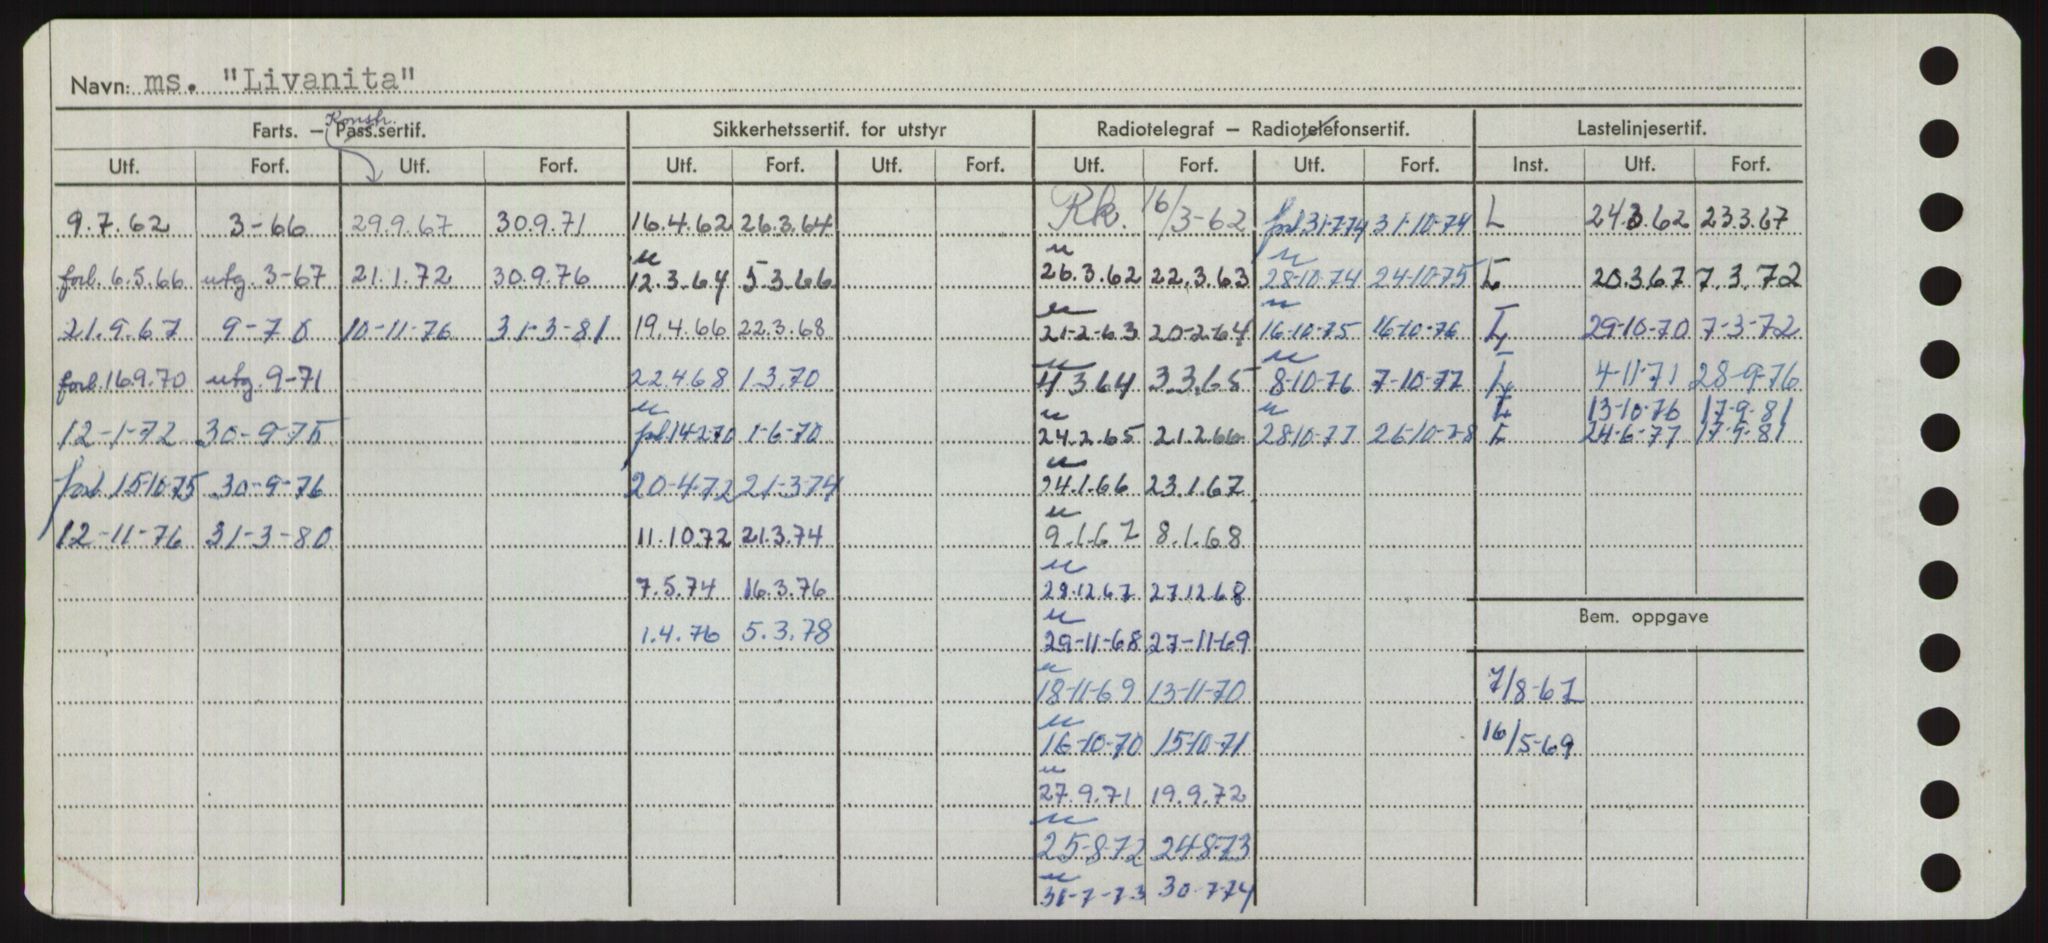 Navn: ms. "Livanita"
Farts. – Pass.sertif. Konstr. Sikkerhetssertif. for utstyr Radiotelegraf – Radiotelefonsertif. Lastelinjesertif.
Utf. Forf. Utf. Forf. Utf. Forf. Utf. Forf. Utf. Forf. Utf. Forf. Inst. Utf. Forf.
9.7.62 3-66 29.9.67 30.9.71 16.4.62 26.3.64 Rk. 16/3-62 forl 31-7-74 31-10-74 L 24.3.62 23.3.67
forl. 6.5.66 utg. 3-67 21.1.72 30.9.76 12.3.64 5.3.66 26.3.62 22.3.63 28-10-74 24-10-75 L 20.3.67 7.3.72
21.9.67 9-70 10-11-76 31-3-81 19.4.66 22.3.68 21-2-63 20-2-64 16-10-75 16-10-76 L 29-10-70 7-3-72
forl. 16.9.70 utg. 9-71 22.4.68 1.3.70 4.3.64 3.3.65 8-10-76 7-10-77 L 4-11-71 28-9-76
L 13-10-76 17-9-81
12-1-72 30-9-75 forl 14.2.70 1-6-70 24.2.65 21.2.66 28-10-77 26-10-78 L 24-6-77 17-9-81
forl. 15-10-75 30-9-76 20-4-72 21-3-74 24.1.66 23.1.67
12-11-76 31-3-80 11.10.72 21.3.74 9.1.67 8.1.68
7.5.74 16.3.76 29.12.67 27.12.68
Bem. oppgave
1.4.76 5.3.78 29-11-68 27-11-69
18-11-69 13-11-70 7/8-67
16-10-70 15-10-71 16/5-69
27.9.71 19.9.72
25-8-72 24-8-73
31-7-73 30-7-74